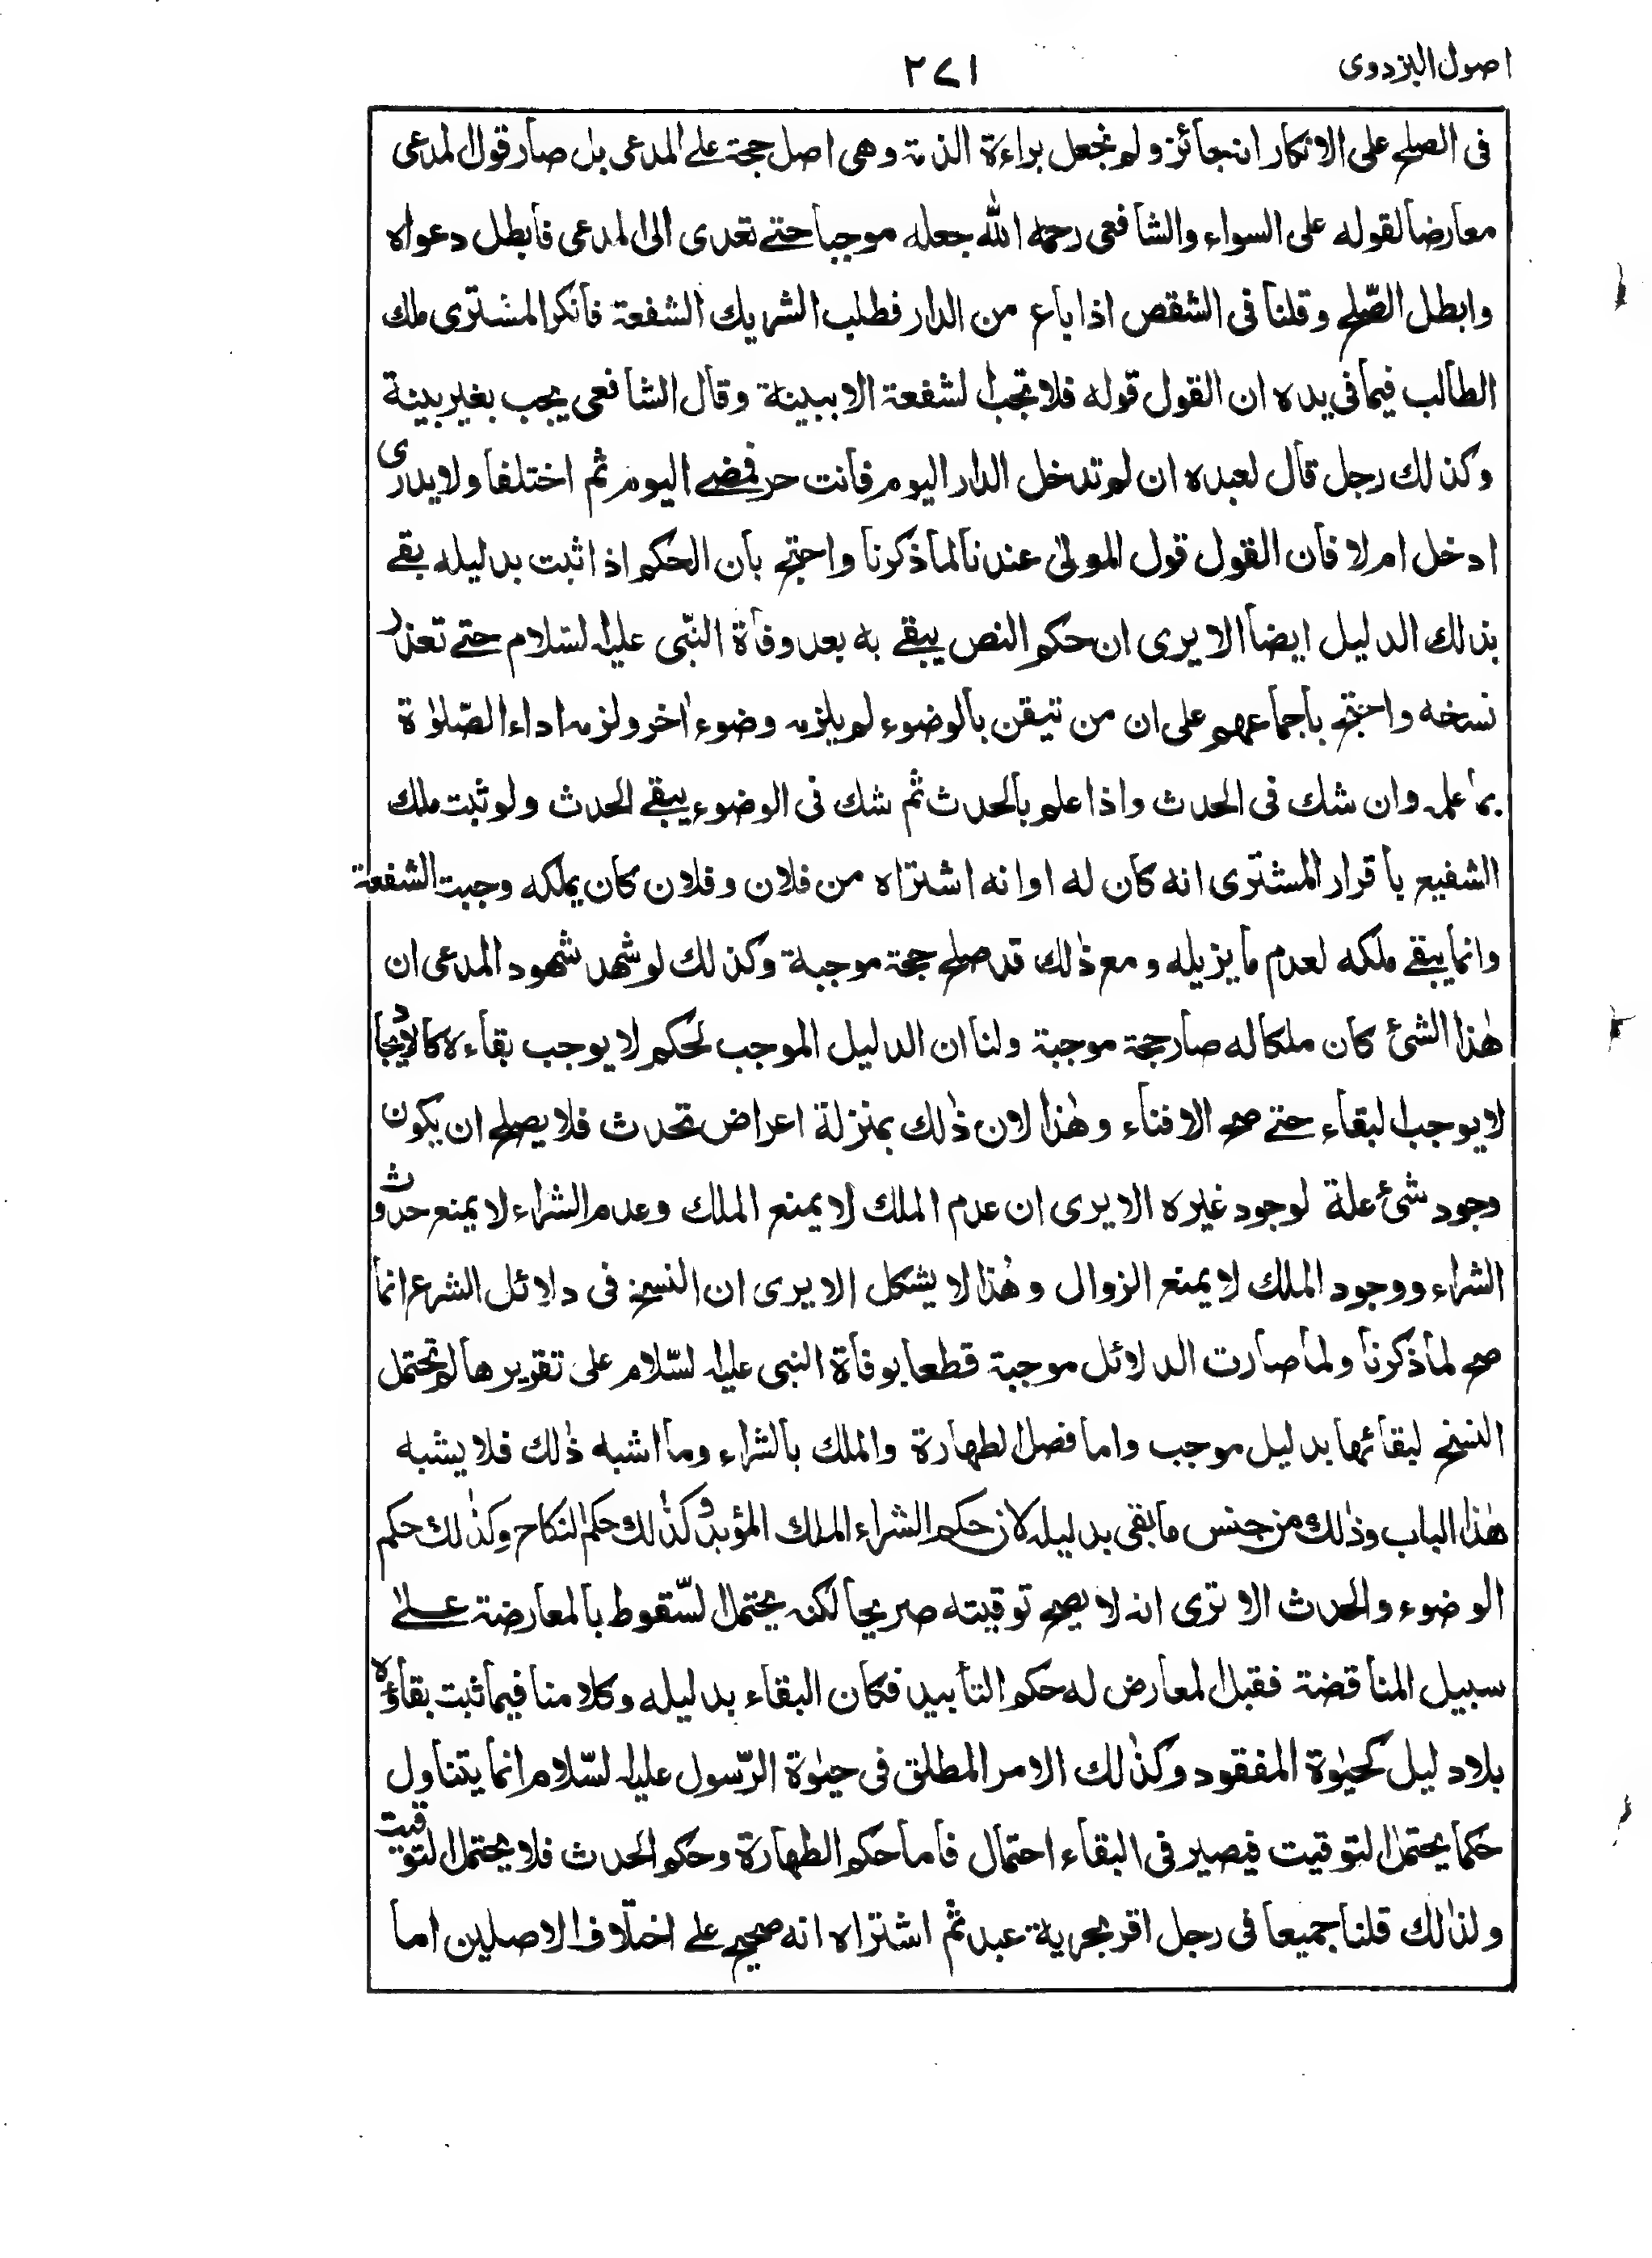 اصول البزدوى
٢٧١
فى الصلح على الانكار انه جائز ولم نجعل براءة الذمة وهى اصل حجة على المدعى بل صار قول المدعى
معارضا لقوله على السواء والشافعى رحمه الله جعله موجبا حتى تعدى الى المدعى فابطل دعواه
وابطل الصّلح وقلنا فى الشقص اذا باع من الدار فطلب الشريك الشفعة فانكر المشترى ملك
الطالب فيما فى يده ان القول قوله فلا تجب الشفعة الا ببينة وقال الشافعى يجب بغير بينة
وكذلك رجل قال لعبده ان لم تدخل الدار اليوم فانت حر فمضى اليوم ثم اختلفا ولا يدرى
ادخل ام لا فان القول قول المولىٰ عندنا لما ذكرنا واحتج بان الحكم اذا ثبت بدليله بقى
بذلك الدليل ايضا الا يرى ان حكم النص يبقى به بعد وفاة النبّى عليه السلام حتى تعذر
نسخه واحتج باجماعهم على ان من تيقن بالوضوء لم يلزمه وضوء اٰخر ولزمه اداء الصّلوٰة
بما علمه وان شك فى الحدث واذا علم بالحدث ثم شك فى الوضوء يبقى الحدث ولو ثبت ملك
الشفيع باقرار المشترى انه كان له او انه اشتراه من فلان وفلان كان يملكه وجبت الشفعة
وانما يبقى ملكه لعدم ما يزيله ومع ذٰلك قد صلح حجة موجبة وكذلك لو شهد شهود المدعى ان
هٰذا الشئ كان ملكا له صار حجة موجبة ولنا ان الدليل الموجب لحكم لا يوجب بقاءه كالايجاد
لا يوجب البقاء حتى صح الافناء وهٰذا لان ذٰلك بمنزلة اعراض تحدث فلا يصلح ان يكون
وجود شئ علة لوجود غيره الا يرى ان عدم الملك لا يمنع الملك وعدم الشراء لا يمنع حدوث
الشراء ووجود الملك لا يمنع الزوال وهٰذا لا يشكل الا يرى ان النسخ فى دلائل الشرع انما
صح لما ذكرنا ولما صارت الدلائل موجبة قطعا بوفاة النبى عليه السّلام على تقريرها لم تحتمل
النسخ لبقائها بدليل موجب واما فصل الطهارة والملك بالشراء وما اشبه ذٰلك فلا يشبه
هٰذا الباب وذٰلك من جنس ما بقى بدليله لان حكم الشراء الملك المؤبد وكذٰلك حكم النكاح وكذٰلك حكم
الوضوء والحدث الا ترى انه لا يصح توقيته صريحا لكنه يحتمل السّقوط بالمعارضة علىٰ
سبيل المناقضة فقبل المعارض له حكم التابيد فكان البقاء بدليله وكلامنا فيما ثبت بقاؤه
بلا دليل كحيٰوة المفقود وكذٰلك الامر المطلق فى حيٰوة الرّسول عليه السّلام انما يتناول
حكما يحتمل التوقيت فيصير فى البقاء احتمال فاما حكم الطهارة وحكم الحدث فلا يحتمل التوقيت
ولذٰلك قلنا جميعا فى رجل اقر بحرية عبد ثم اشتراه انه صحيح على اختلاف الاصلين اما